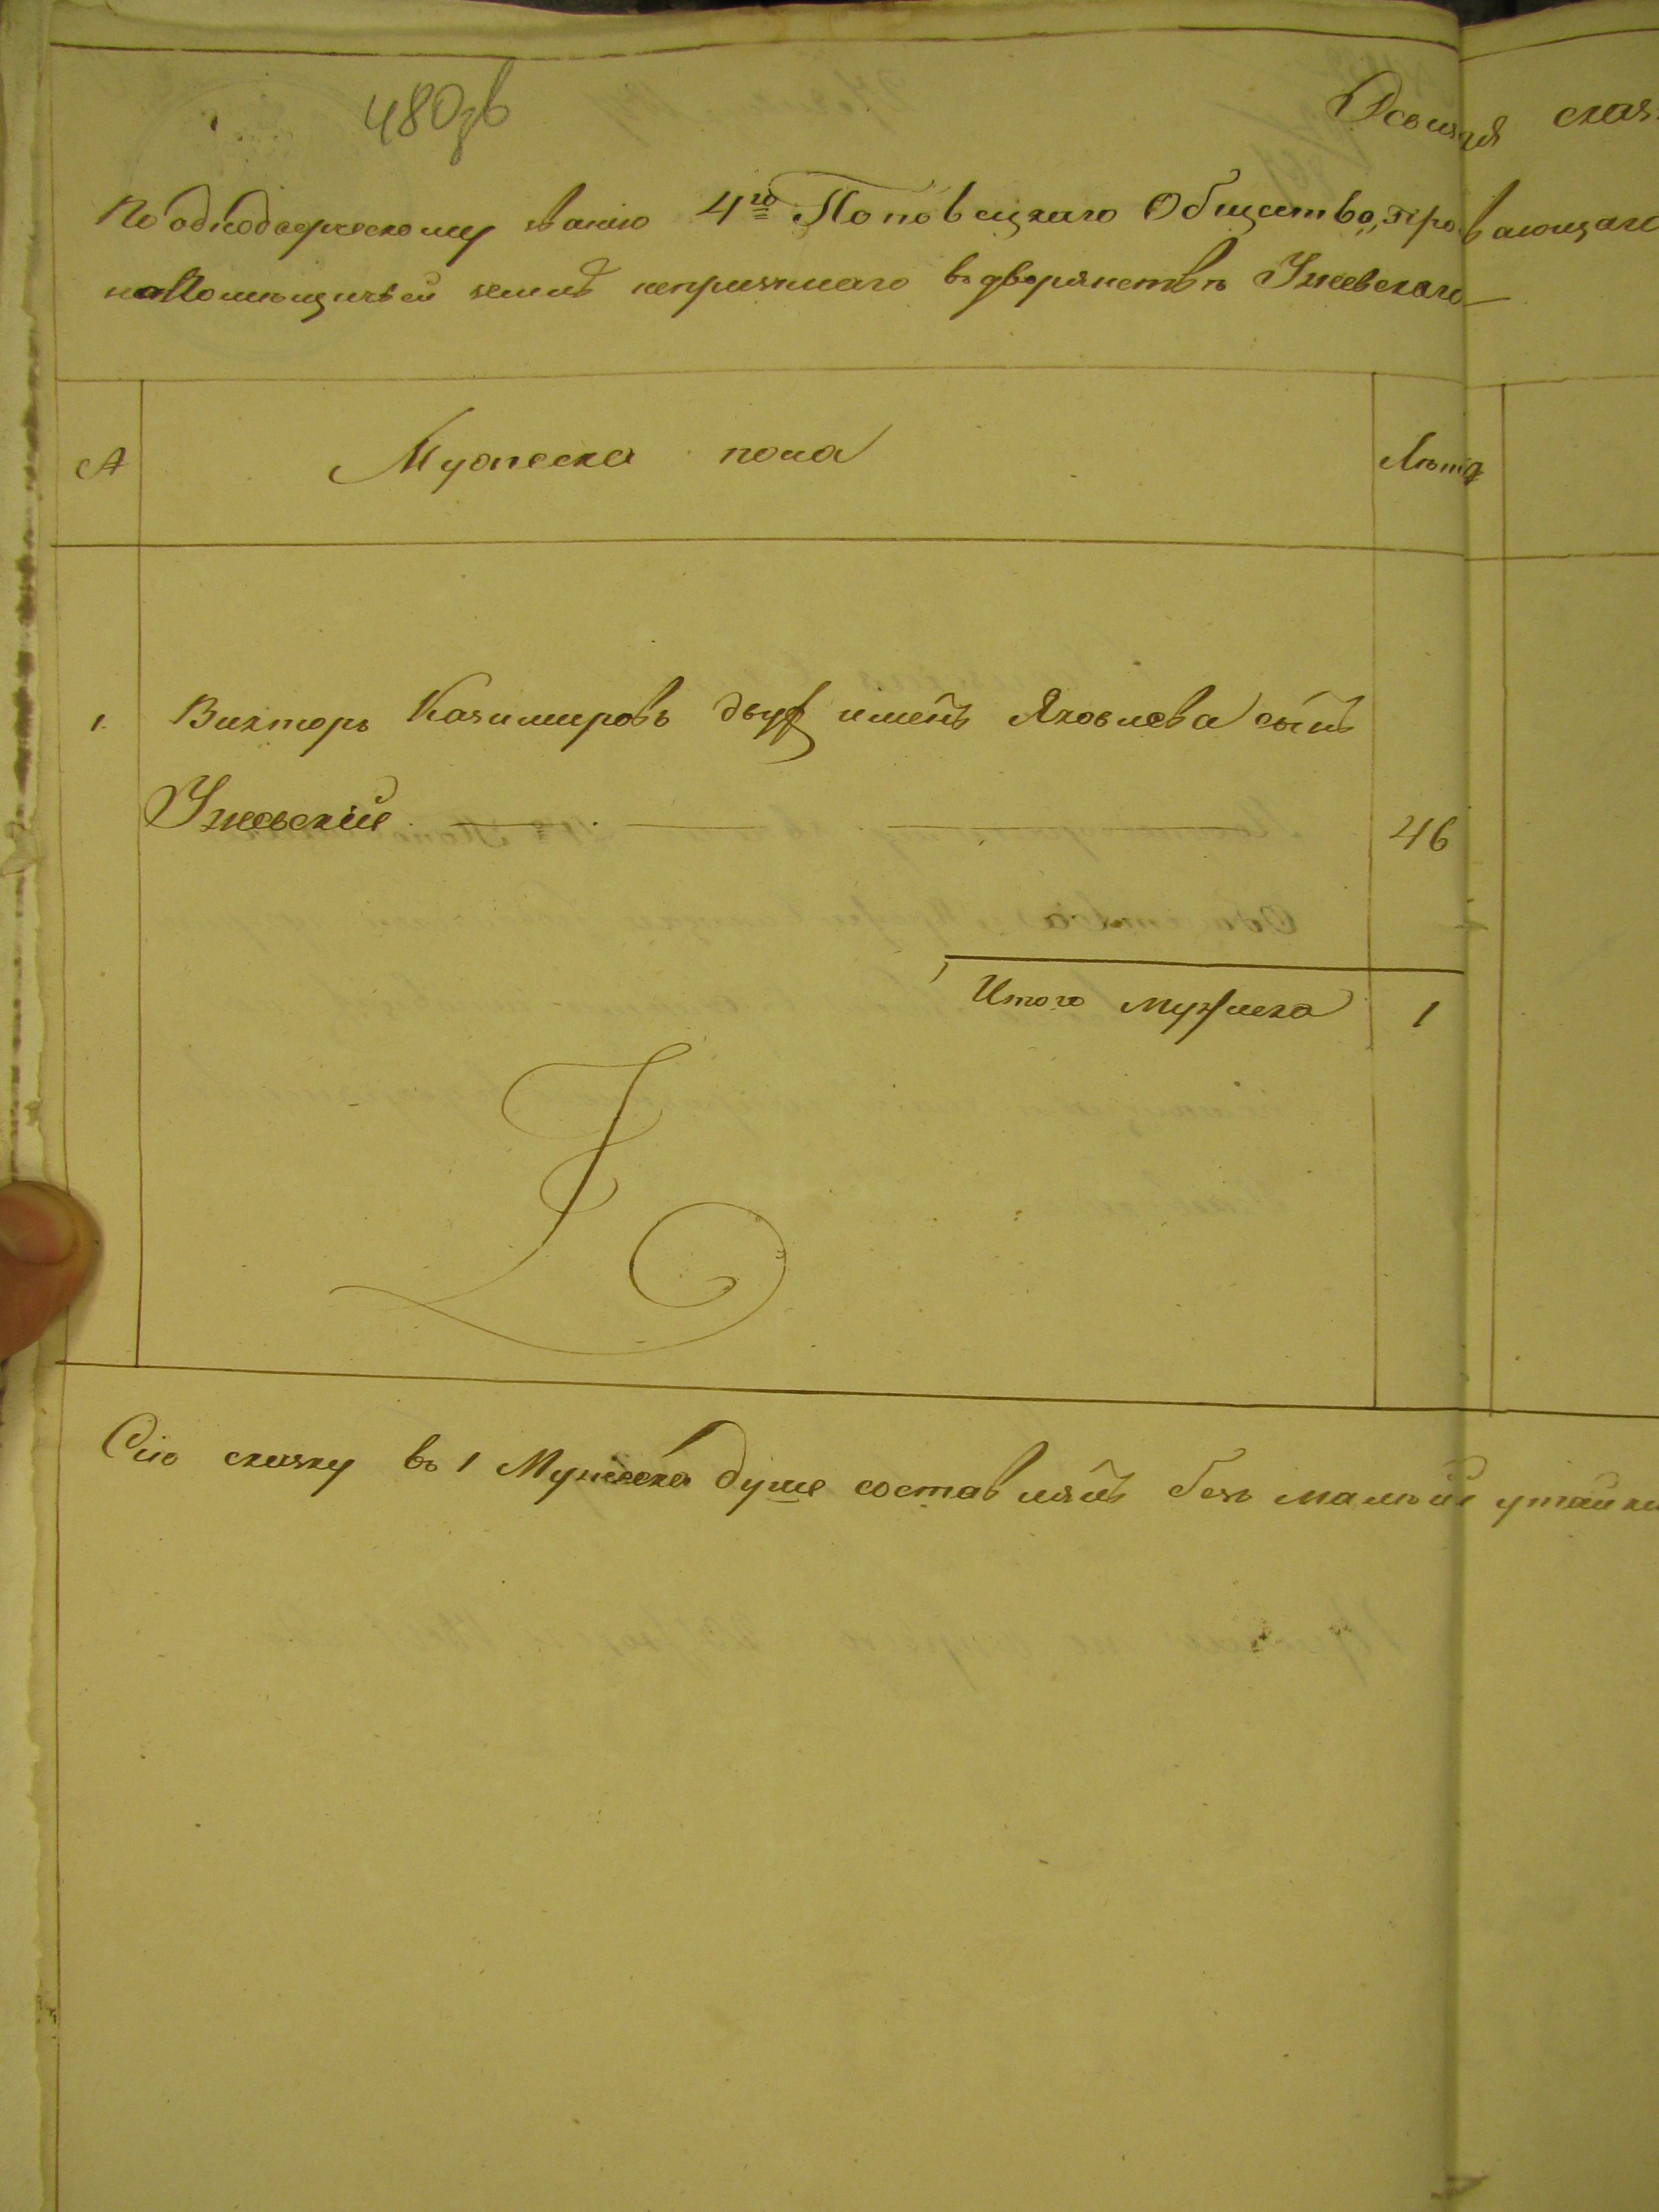 480зв
Особая сказ
По однодворческому званию 4го Поповецкаго Общества, про вающаго
на Помещичьей земле непризнаго в дворянстве Ужевскаго
№ Мужеска пола Лѣта
1. Викторъ Казимировъ двухъ именъ Яковлева сынъ
Ужевскій 46
Итого мужеска 1
Сію сказку въ 1 Мужеска душе составлялъ безъ малѣйшей утайки